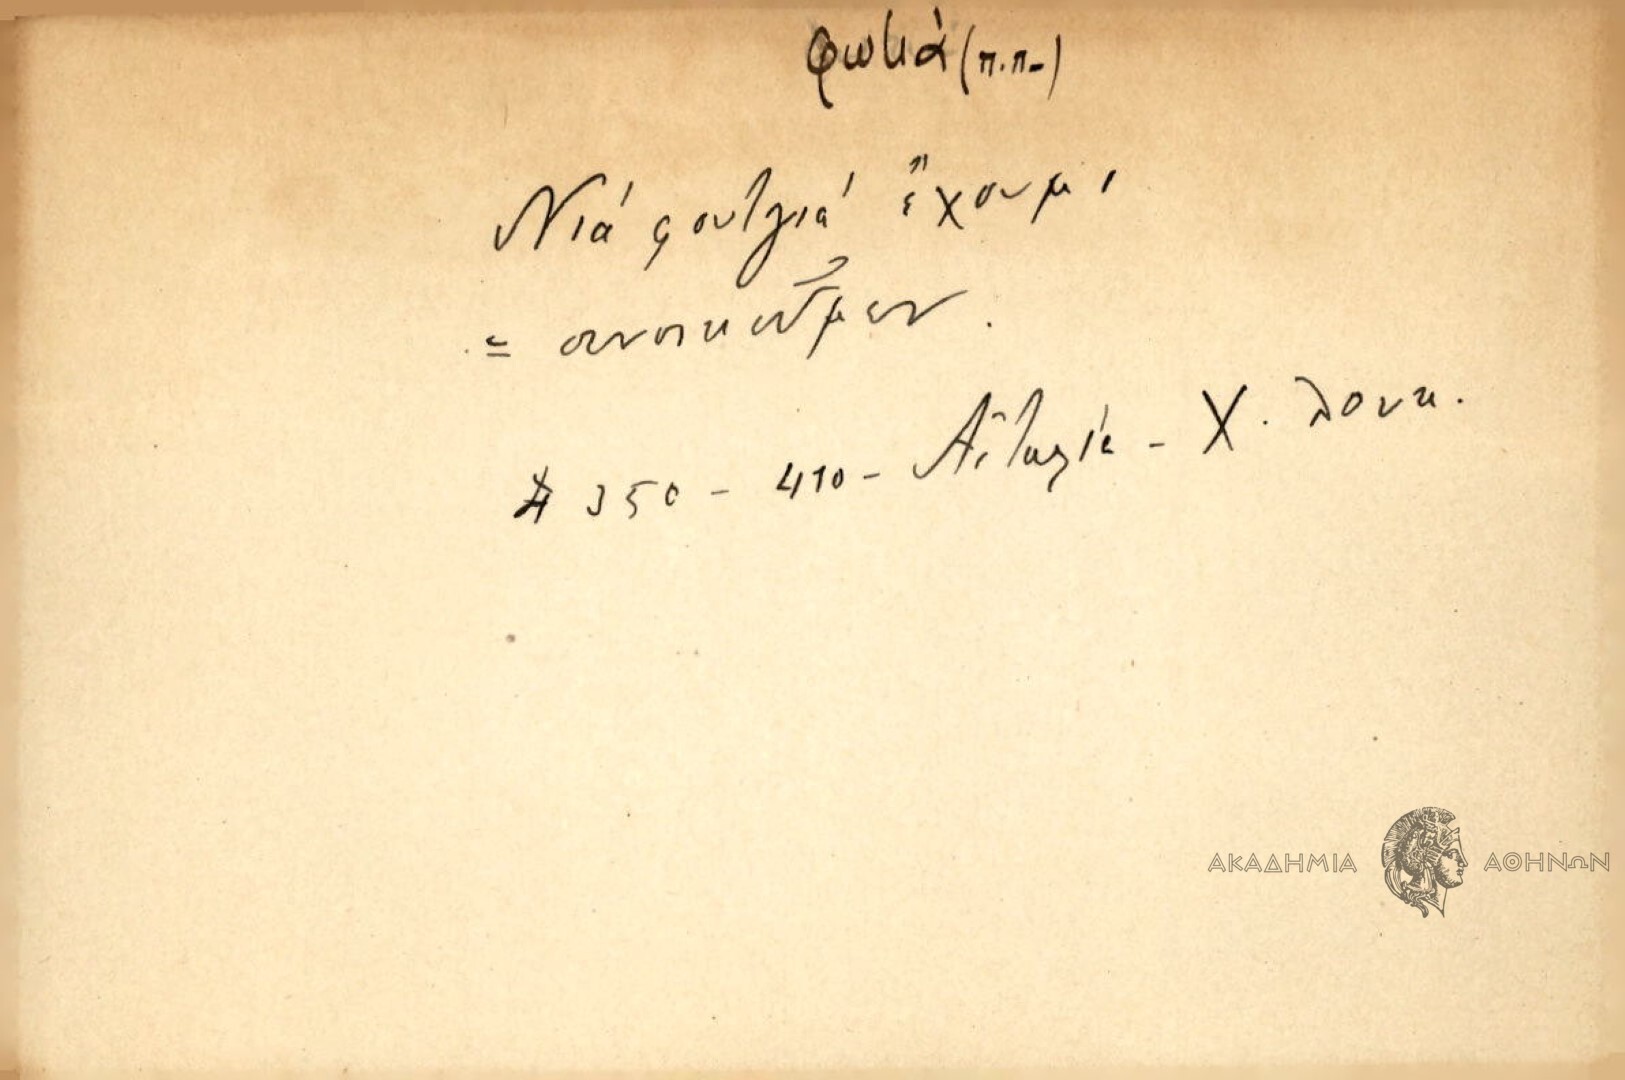 φωτιά (π.π.)
Νιά φουτγιά ἔχουμι
= συνοικοῦμεν.
Λ 350 - 410 - Αἰτωλία - Χ. Λουκ.
ΑΚΑΔΗΜΙΑ ΑΘΗΝΩΝ